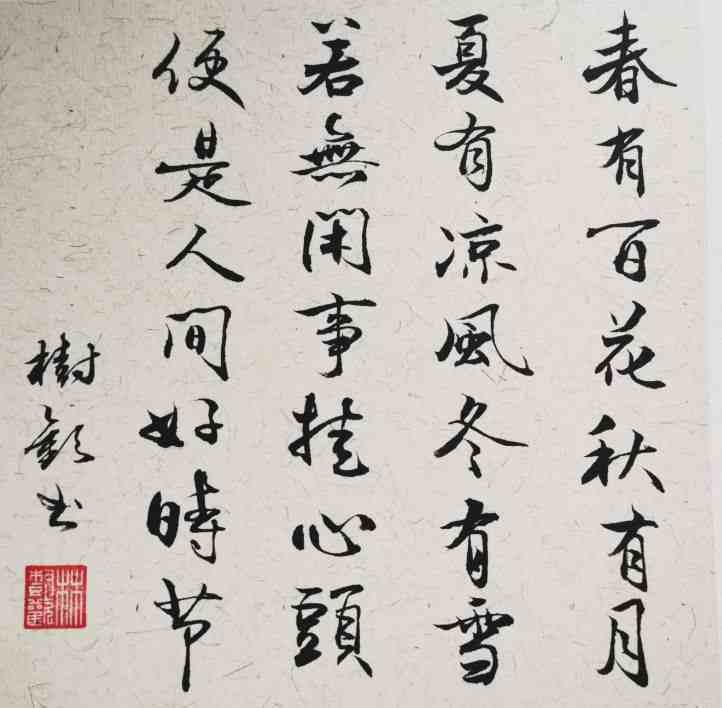 春有百花秋有月
夏有凉風冬有雪
若無閑事挂心頭
便是人間好時节
樹书